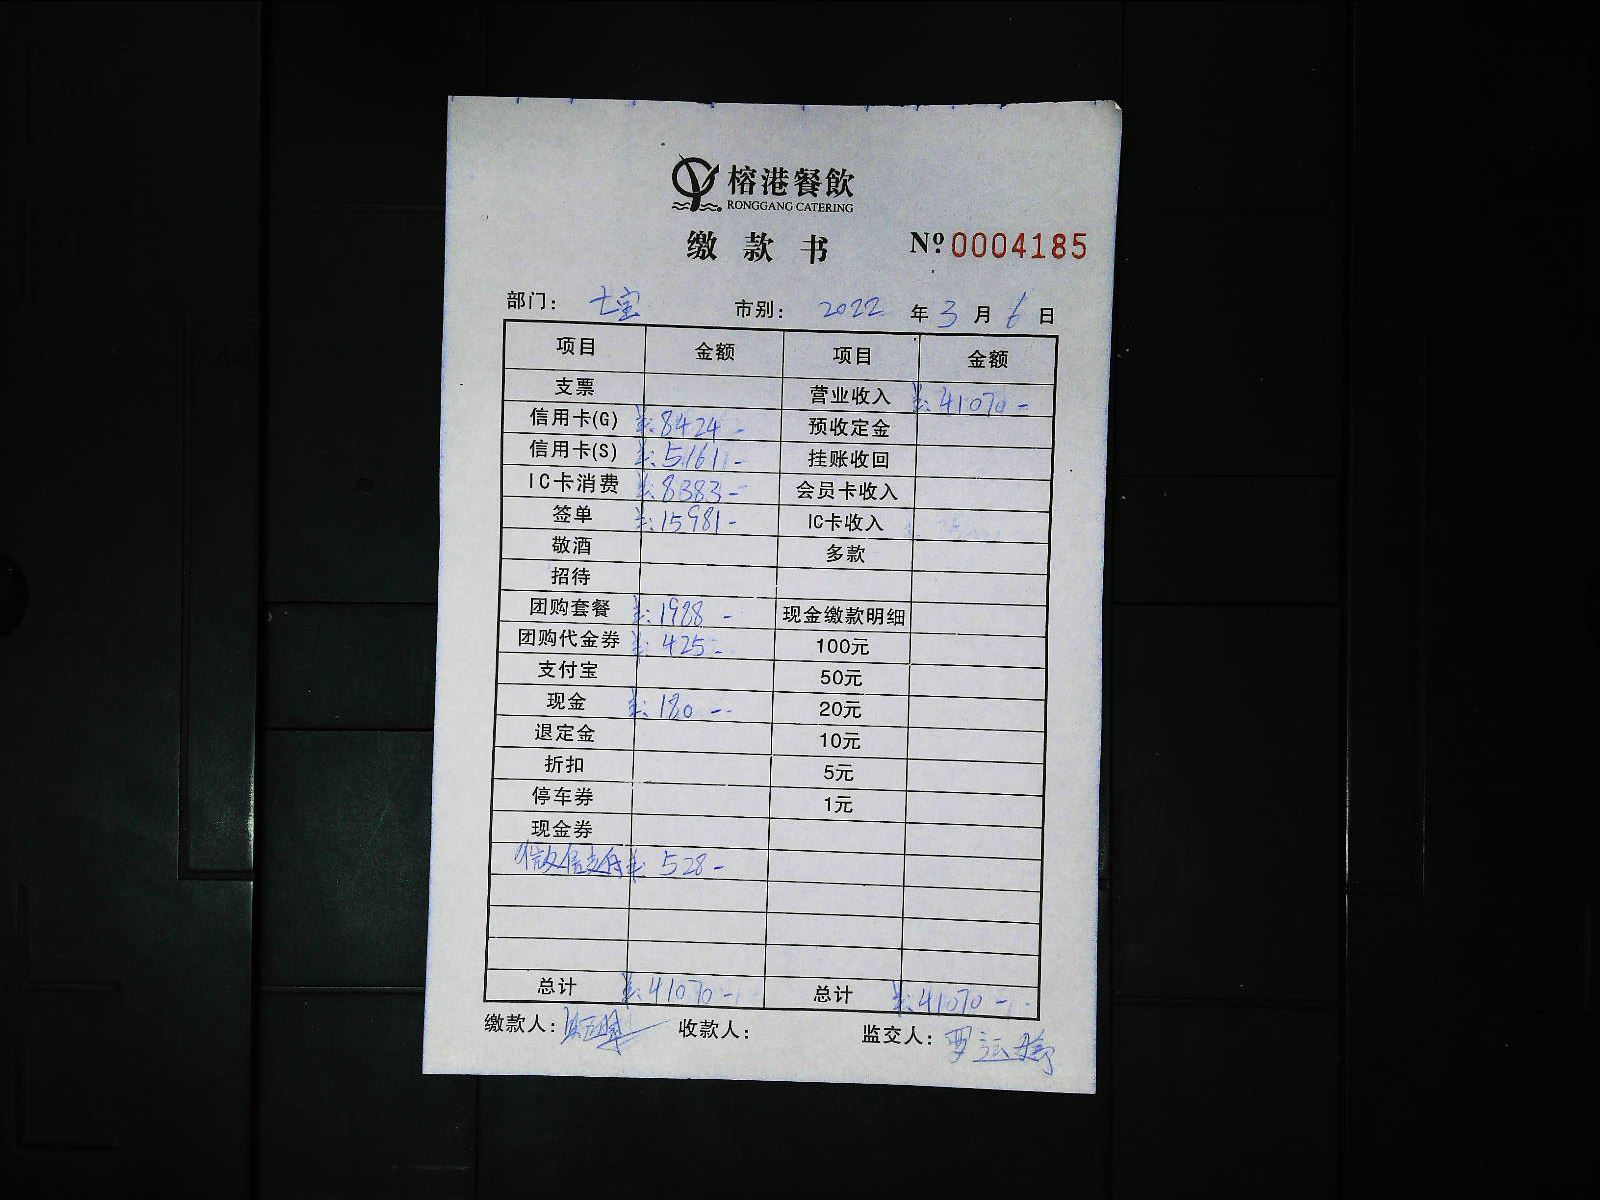 榕港餐飲
RONGGANG CATERING
缴款书 Nº 0004185
部门: 七宝 市别: 2022 年 3 月 6 日
项目 金额 项目 金额
支票 营业收入 ¥:41070-
信用卡(G) ¥:8424- 预收定金
信用卡(S) ¥:5161- 挂账收回
IC卡消费 ¥:8383- 会员卡收入
签单 ¥:15981- IC卡收入
敬酒 多款
招待
团购套餐 ¥:1988- 现金缴款明细
团购代金券 ¥:425- 100元
支付宝 50元
现金 ¥:180- 20元
退定金 10元
折扣 5元
停车券 1元
现金券
微信支付 ¥:528-
总计 ¥:41070- 总计 ¥:41070-
缴款人: 收款人: 监交人: 罗